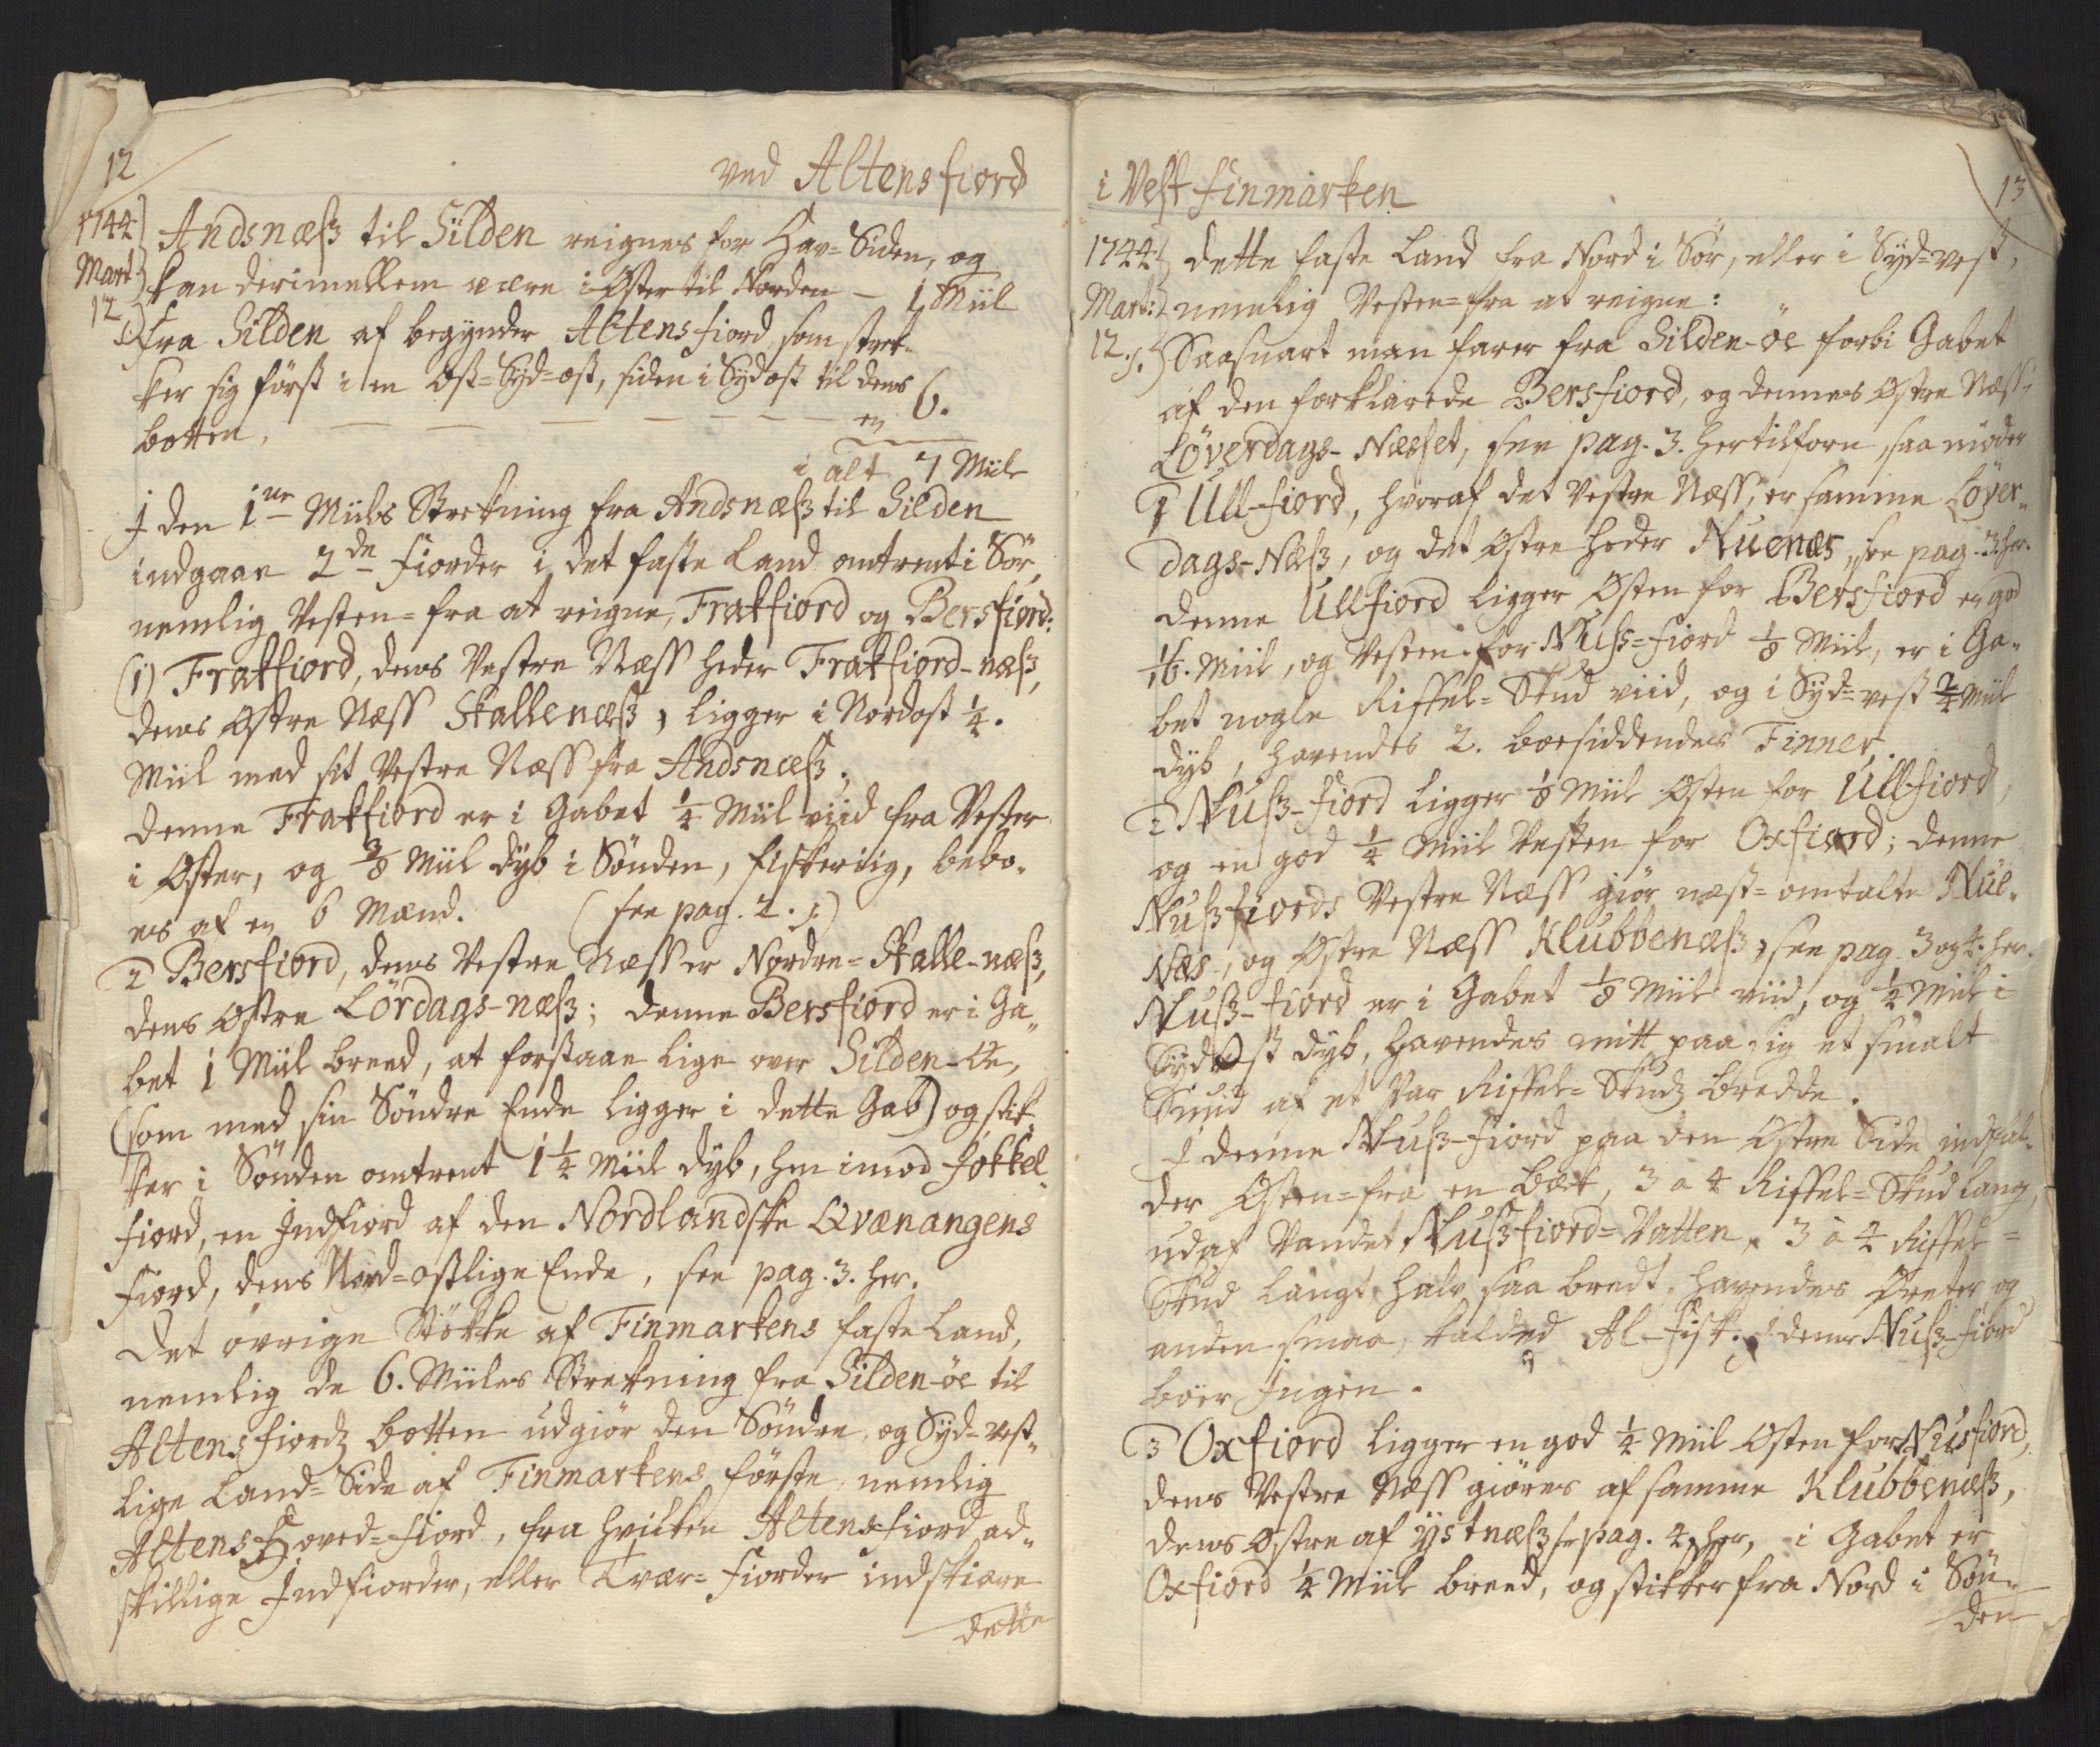 12
ved Altensfiord
1744.
Mart:
12.
Andsnæß til Silden reignes for Hav-Siden, og
kan derimellem være i Øster til Norden — 1 Miil
fra Silden af begynder Altensfiord, som strek-
ker sig først i en Ost-Syd-ost, siden i Sydost til dens
botten, — — — — — en 6.
i alt 7 Miile
I den 1ne Miils Strekning fra Andsnæß til Silden
indgaae 2de Fiorder i det faste Land omtrent i Sør,
nemlig Vesten-fra at reigne, Frakfiord og Bersfiord:
(1) Frakfiord, dens Vestre Næss heder Frakfiord-næß,
dens Østre Næss Skallenæß, ligger i Nordost 1/4.
Miil med sit Vestre Næss fra Andsnæß;
denne Frakfiord er i Gabet 1/4 Miil viid fra Vester
i Øster, og 3/8 Miil dyb i Sønden, fiskeriig, bebo-
es af en 6 Mænd. (see pag. 2.)
2 Bersfiord, dens Vestre Næss er Nordre-Skalle-næß,
dens Østre Lördags-næß; denne Bersfiord er i Ga-
bet 1 Miil breed, at forstaae lige over Silden-Øe,
(som med sin Søndre Ende ligger i dette Gab) og stik-
ker i Sønden omtrent 1 1/4 Miil dyb, hen imod Jøkkel-
fiord, en Indfiord af den Nordlandske Qvænangens
Fiord, dens Nord-ostlige Ende, see pag. 3. her.
Det øvrige Støkke af Finmarkens faste Land,
nemlig de 6. Miiles Strekning fra Silden-øe til
Altensfiords botten udgiør den Søndre, og Syd-vest-
lige Land-Side af Finmarkens første, nemlig
Altens Hoved-fiord, fra hvilken Altensfiord ad-
skillige Indfiorder, eller Tvær-Fiorder indskiære
dette
i Vest Finmarken
13
1744.
Mart:
12.
dette faste Land fra Nord i Sør, eller i Syd-vest,
nemlig Vesten-fra at reigne:
Saasnart man farer fra Silden-øe forbi Gabet
af den forklarede Bersfiord, og dennes Østre Næss,
Løverdags-Næsset, see pag. 3. hertilforn, saa møder
1 Ull-fiord, hvoraf det Vestre Næss, er samme Løver-
dags-Næß, og det Østre heder Nuenæs, see pag. 3. her.
denne Ullfiord ligger Østen for Bersfiord en god
1/16. Miil, og Vesten for Nuß-Fiord 1/8 Miil, er i Ga-
bet nogle Riffel-Skud viid, og i Syd-vest 2/4 Miil
dyb, havendes 2. boesiddendes Finner.
2 Nuß-Fiord ligger 1/8 Miil Østen for Ullfiord,
og en god 1/4 Miil Vesten for Oxfiord; denne
Nußfiords Vestre Næss giør næst-omtalte Nue-
Næs, og Østre Næss Klubbenæß, see pag. 3 og 4. her.
Nuß-fiord er i Gabet 1/8 Miil viid, og 1/4 Miil i
SydOst dyb, havendes mitt paa sig et smalt
Sund af et Par Riffel-Skuds bredde.
I denne Nuß-Fiord paa den Østre Side indfal-
der Østen-fra en bæk, 3 a 4 Riffel-Skud lang,
udaf Vandet Nußfiord-Vatten, 3 à 4 Riffel-
Skud langt, halv saa bredt, havendes Ørreter og
anden smaa, kalded Al-Fisk. I denne Nuß-Fiord
boer Ingen.
3 Oxfiord ligger en god 1/4 Miil Østen for Nusfiord,
dens Vestre Næss giøres af samme Klubbenæß,
dens Østre af ÿstnæß se pag. 4. her, i Gabet er
Oxfiord 1/4 Miil breed, og stikker fra Nord i Søn-
den